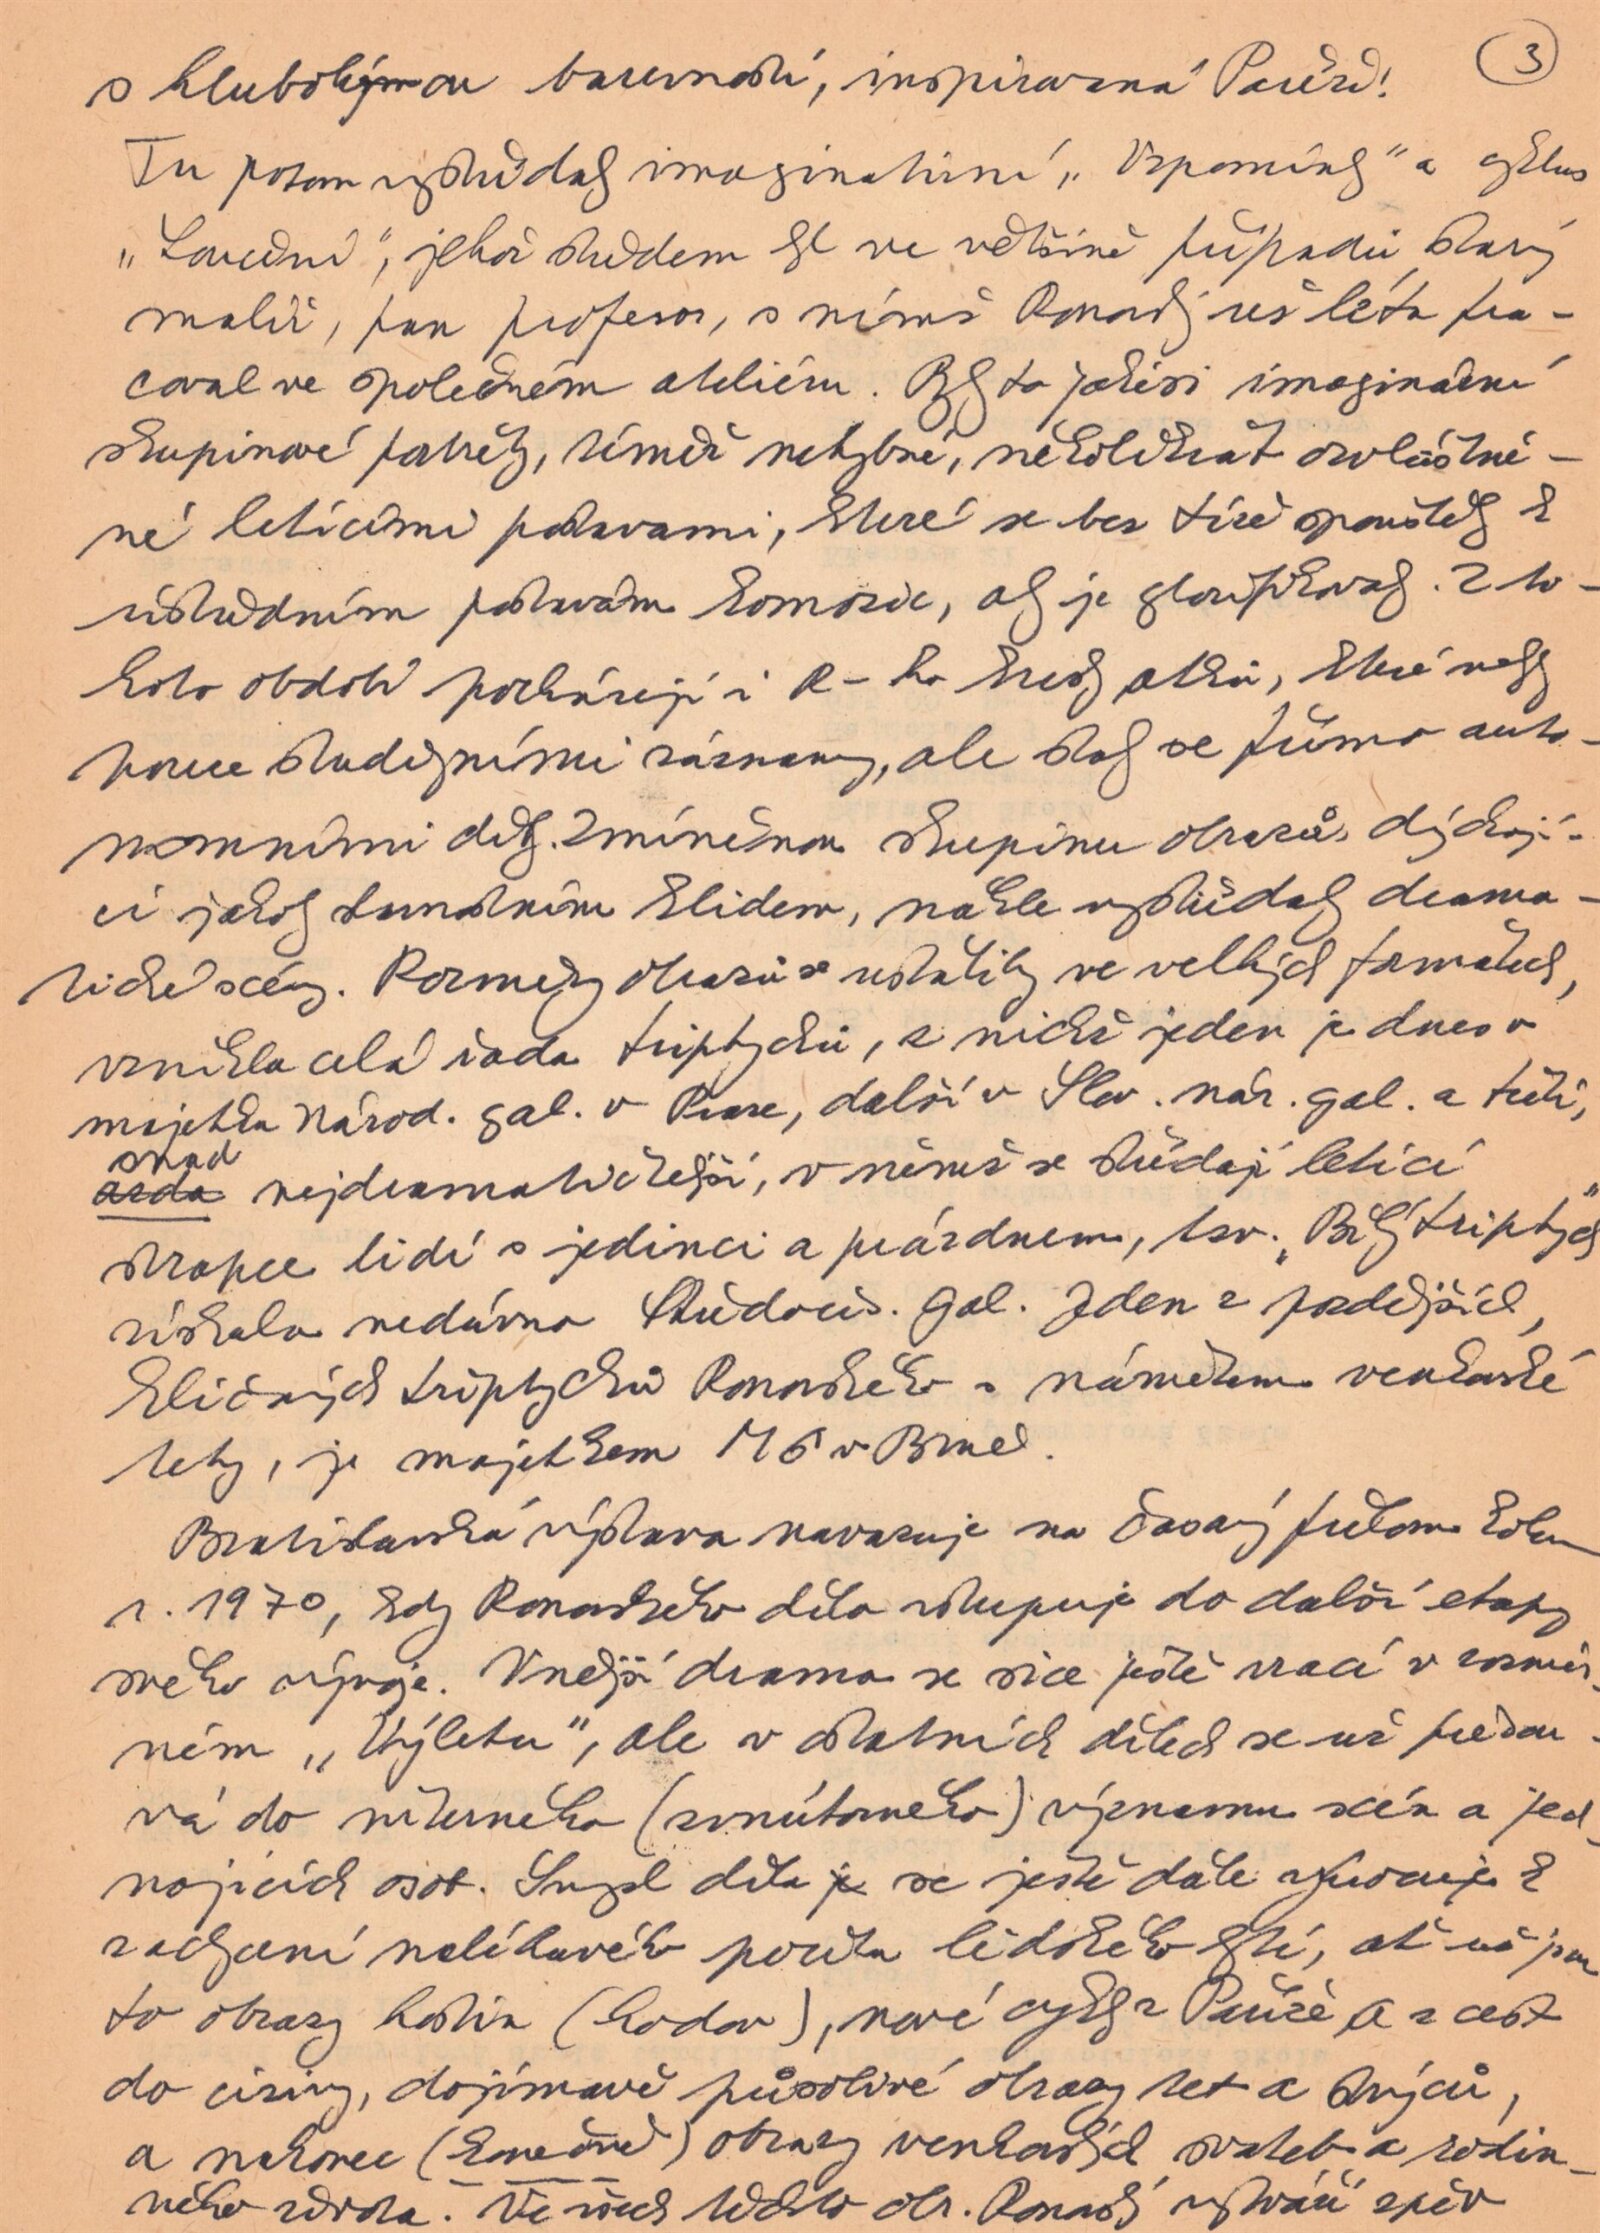 3
s hlubokou barevností, inspirovaná Paříží!
Tu potom vystřídaly imaginativní „Vzpomínky" a cyklus
„Loučení", jehož středem byl ve většině případů starý
malíř, pan profesor, s nímž Ronovský už léta pra-
coval ve společném ateliéru. Byly to jakési imaginární
skupinové portréty, téměř nehybné, několikrát ozvláštně-
né letícími postavami, které se bez tíže spouštěly k
ústředním postavám kompozic, aby je glorifikovaly. Z to-
hoto období pocházejí i R-ho kresby aktů, které nebyly
pouze studijními záznamy, ale staly se přímo auto-
nomními díly. Zmíněnou skupinu obrazů, dýchají-
cí jakoby smutným klidem, náhle vystřídaly drama-
tické scény. Rozměry obrazů se ustálily ve velkých formátech,
vznikla celá řada triptychů, z nichž jeden je dnes v
majetku Národ. gal. v Praze, další v Slov. nár. gal. a třetí,
snad
asda nejdramatičtější, v němž se střídají letící
strapce lidí s jedinci a prázdnem, tzv. „Bílý triptych"
získala nedávno Středočes. gal. Jeden z pozdějších,
klíčových triptychů Ronovského s námětem venkovské
tety, je majetkem MG v Brně.
Bratislavská výstava navazuje na časový přelom kolem
r. 1970, kdy Ronovského dílo vstupuje do další etapy
svého vývoje. Vnější drama se sice ještě vrací v rozměr-
ném „Výletu", ale v ostatních dílech se už přesou-
vá do niterného (zvnútorneho) významu scén a jed-
najících osob. Smysl díla je se ještě dále vyhraňuje k
zachycení nelíčeného pocitu lidského bytí, ať už jsou
to obrazy hostin (hodov), nové cykly z Paříže a z cest
do ciziny, dojímavě působivé obrazy tet a strýců,
a nakonec (konečně) obrazy venkovských svateb a rodin-
ného života. Ve všech těchto obr. Ronovský vytváří zpěv